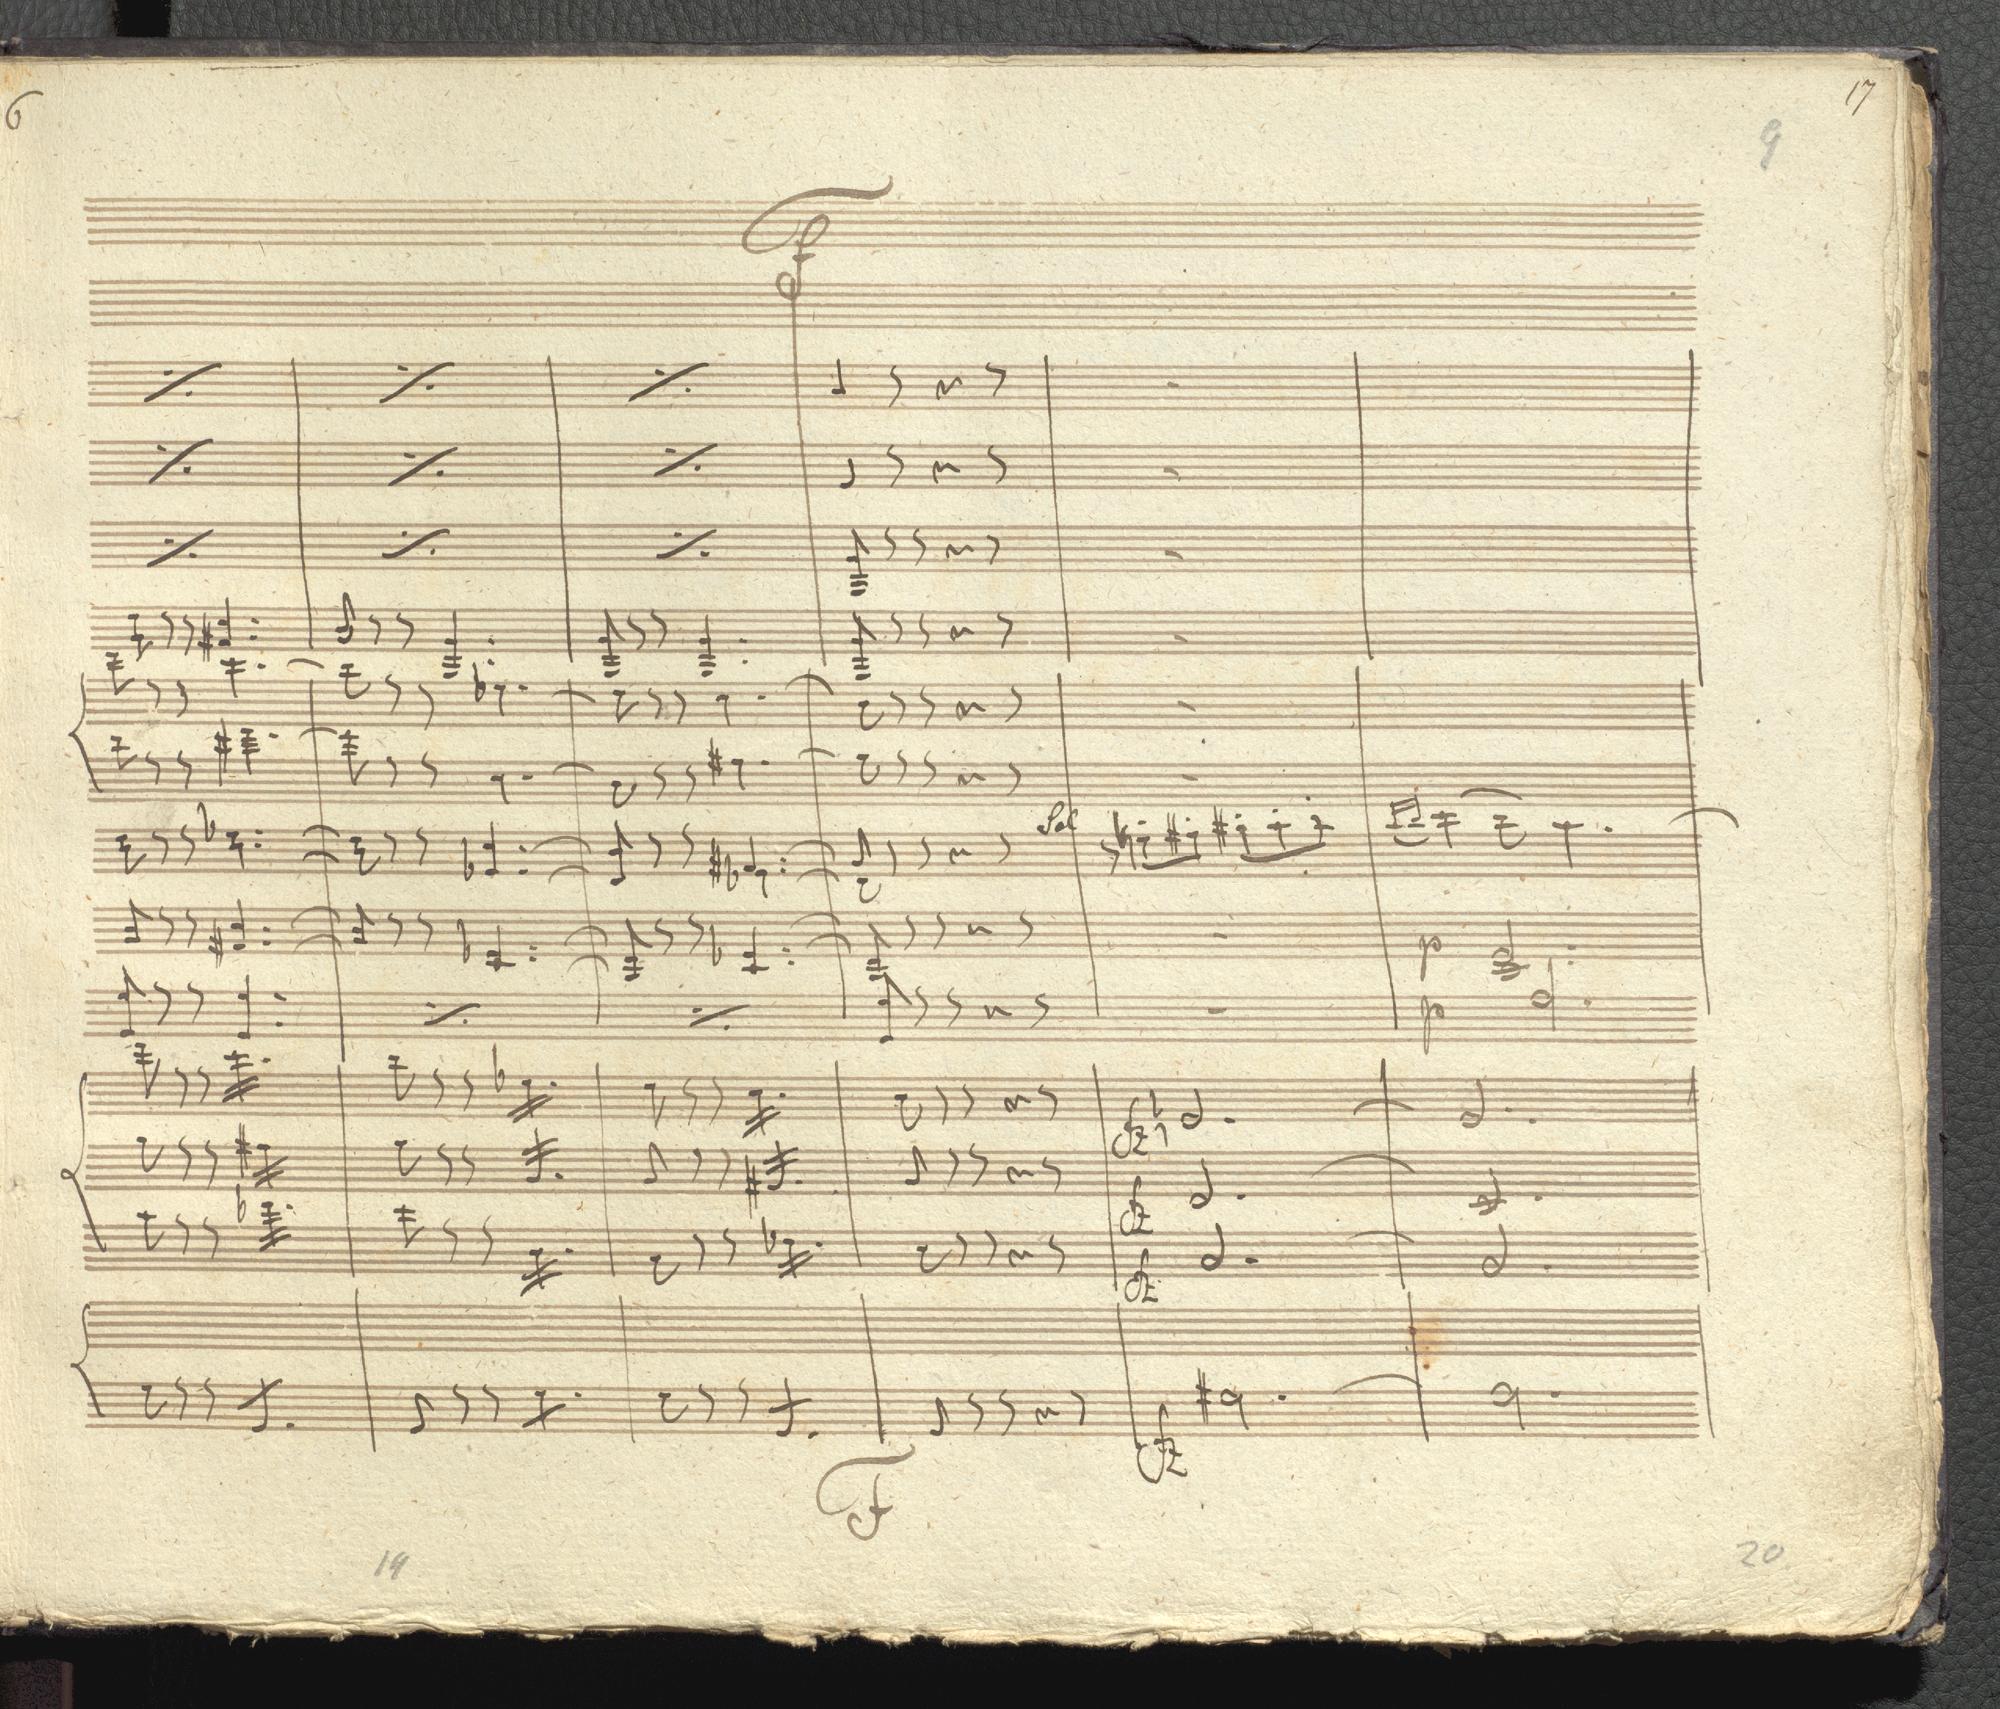 6
17
9
F
Sol
p
p
fz
fz
fz
fz
F
19
20